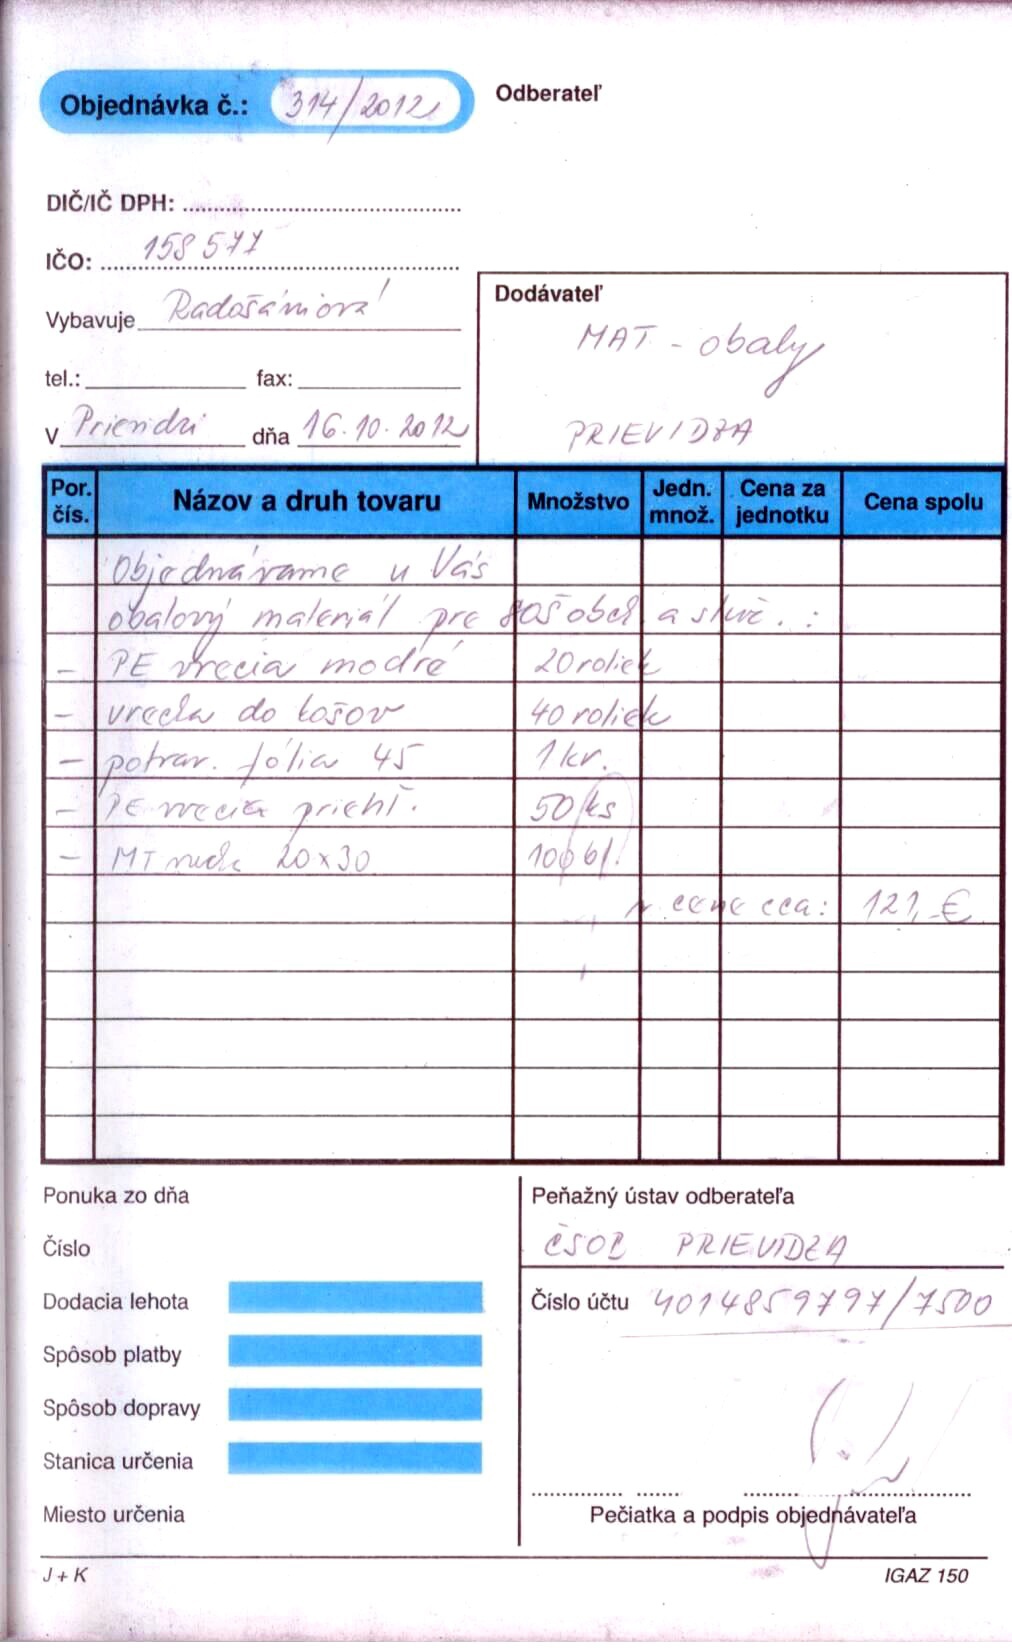 Objednávka č.: 314/2012
Odberateľ
DIČ/IČ DPH:
IČO: 158 577
Vybavuje Radošániová
tel.: fax:
V Prievidzi dňa 16.10.2012
Dodávateľ
MAT - obaly
PRIEVIDZA
Por. čís. Názov a druh tovaru Množstvo Jedn. množ. Cena za jednotku Cena spolu
Objednávame u Vás
obalový materiál pre SOŠ obch. a služ. :
- PE vrecia modré 20 roliek
- vrecka do košov 40 roliek
- potrav. fólia 45 1 kr.
- PE vrecia priehľ. 50 ks
- MT 20x30 100 bl.
v cene cca: 121,-€
Ponuka zo dňa
Číslo
Dodacia lehota
Spôsob platby
Spôsob dopravy
Stanica určenia
Miesto určenia
Peňažný ústav odberateľa
ČSOB PRIEVIDZA
Číslo účtu 4014859797/7500
Pečiatka a podpis objednávateľa
J + K
IGAZ 150